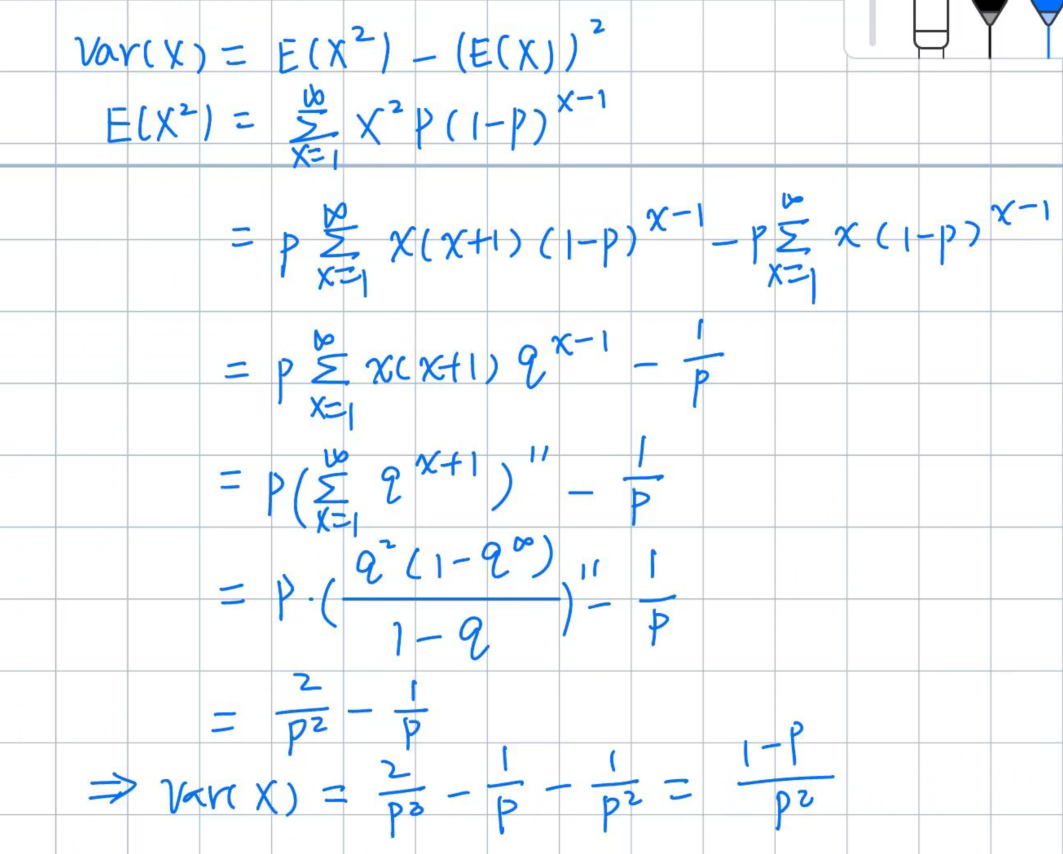 Var(X) = E(X²) - (E(X))²
E(X²) = ∑_{x=1}^{∞} x² p(1-p)^{x-1}
= p ∑_{x=1}^{∞} x(x+1)(1-p)^{x-1} - p ∑_{x=1}^{∞} x(1-p)^{x-1}
= p ∑_{x=1}^{∞} x(x+1) q^{x-1} - 1/p
= p(∑_{x=1}^{∞} q^{x+1})'' - 1/p
= p·(q²(1-q^∞)/(1-q))'' - 1/p
= 2/p² - 1/p
⇒ Var(X) = 2/p² - 1/p - 1/p² = (1-p)/p²